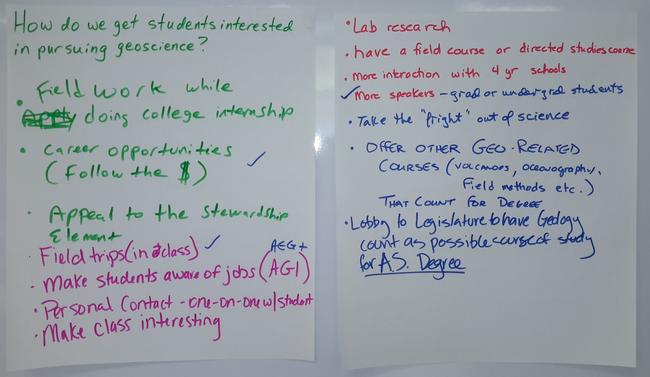 How do we get students interested
in pursuing geoscience?
• Field work while
doing college internship
• Career opportunities ✓
(Follow the $)
• Appeal to the stewardship
Element
• Field trips (in class) ✓
• Make students aware of jobs (AGI)
AEG +
• Personal Contact - one-on-one w/student
• Make class interesting
• Lab research
• have a field course or directed studies course
• more interaction with 4 yr schools
✓ More speakers - grad or undergrad students
• Take the "fright" out of science
• OFFER OTHER GEO-RELATED
COURSES (volcanoes, oceanography,
Field methods etc.)
THAT COUNT FOR DEGREE
• Lobby to Legislature to have Geology
count as possible course of study
for A.S. Degree